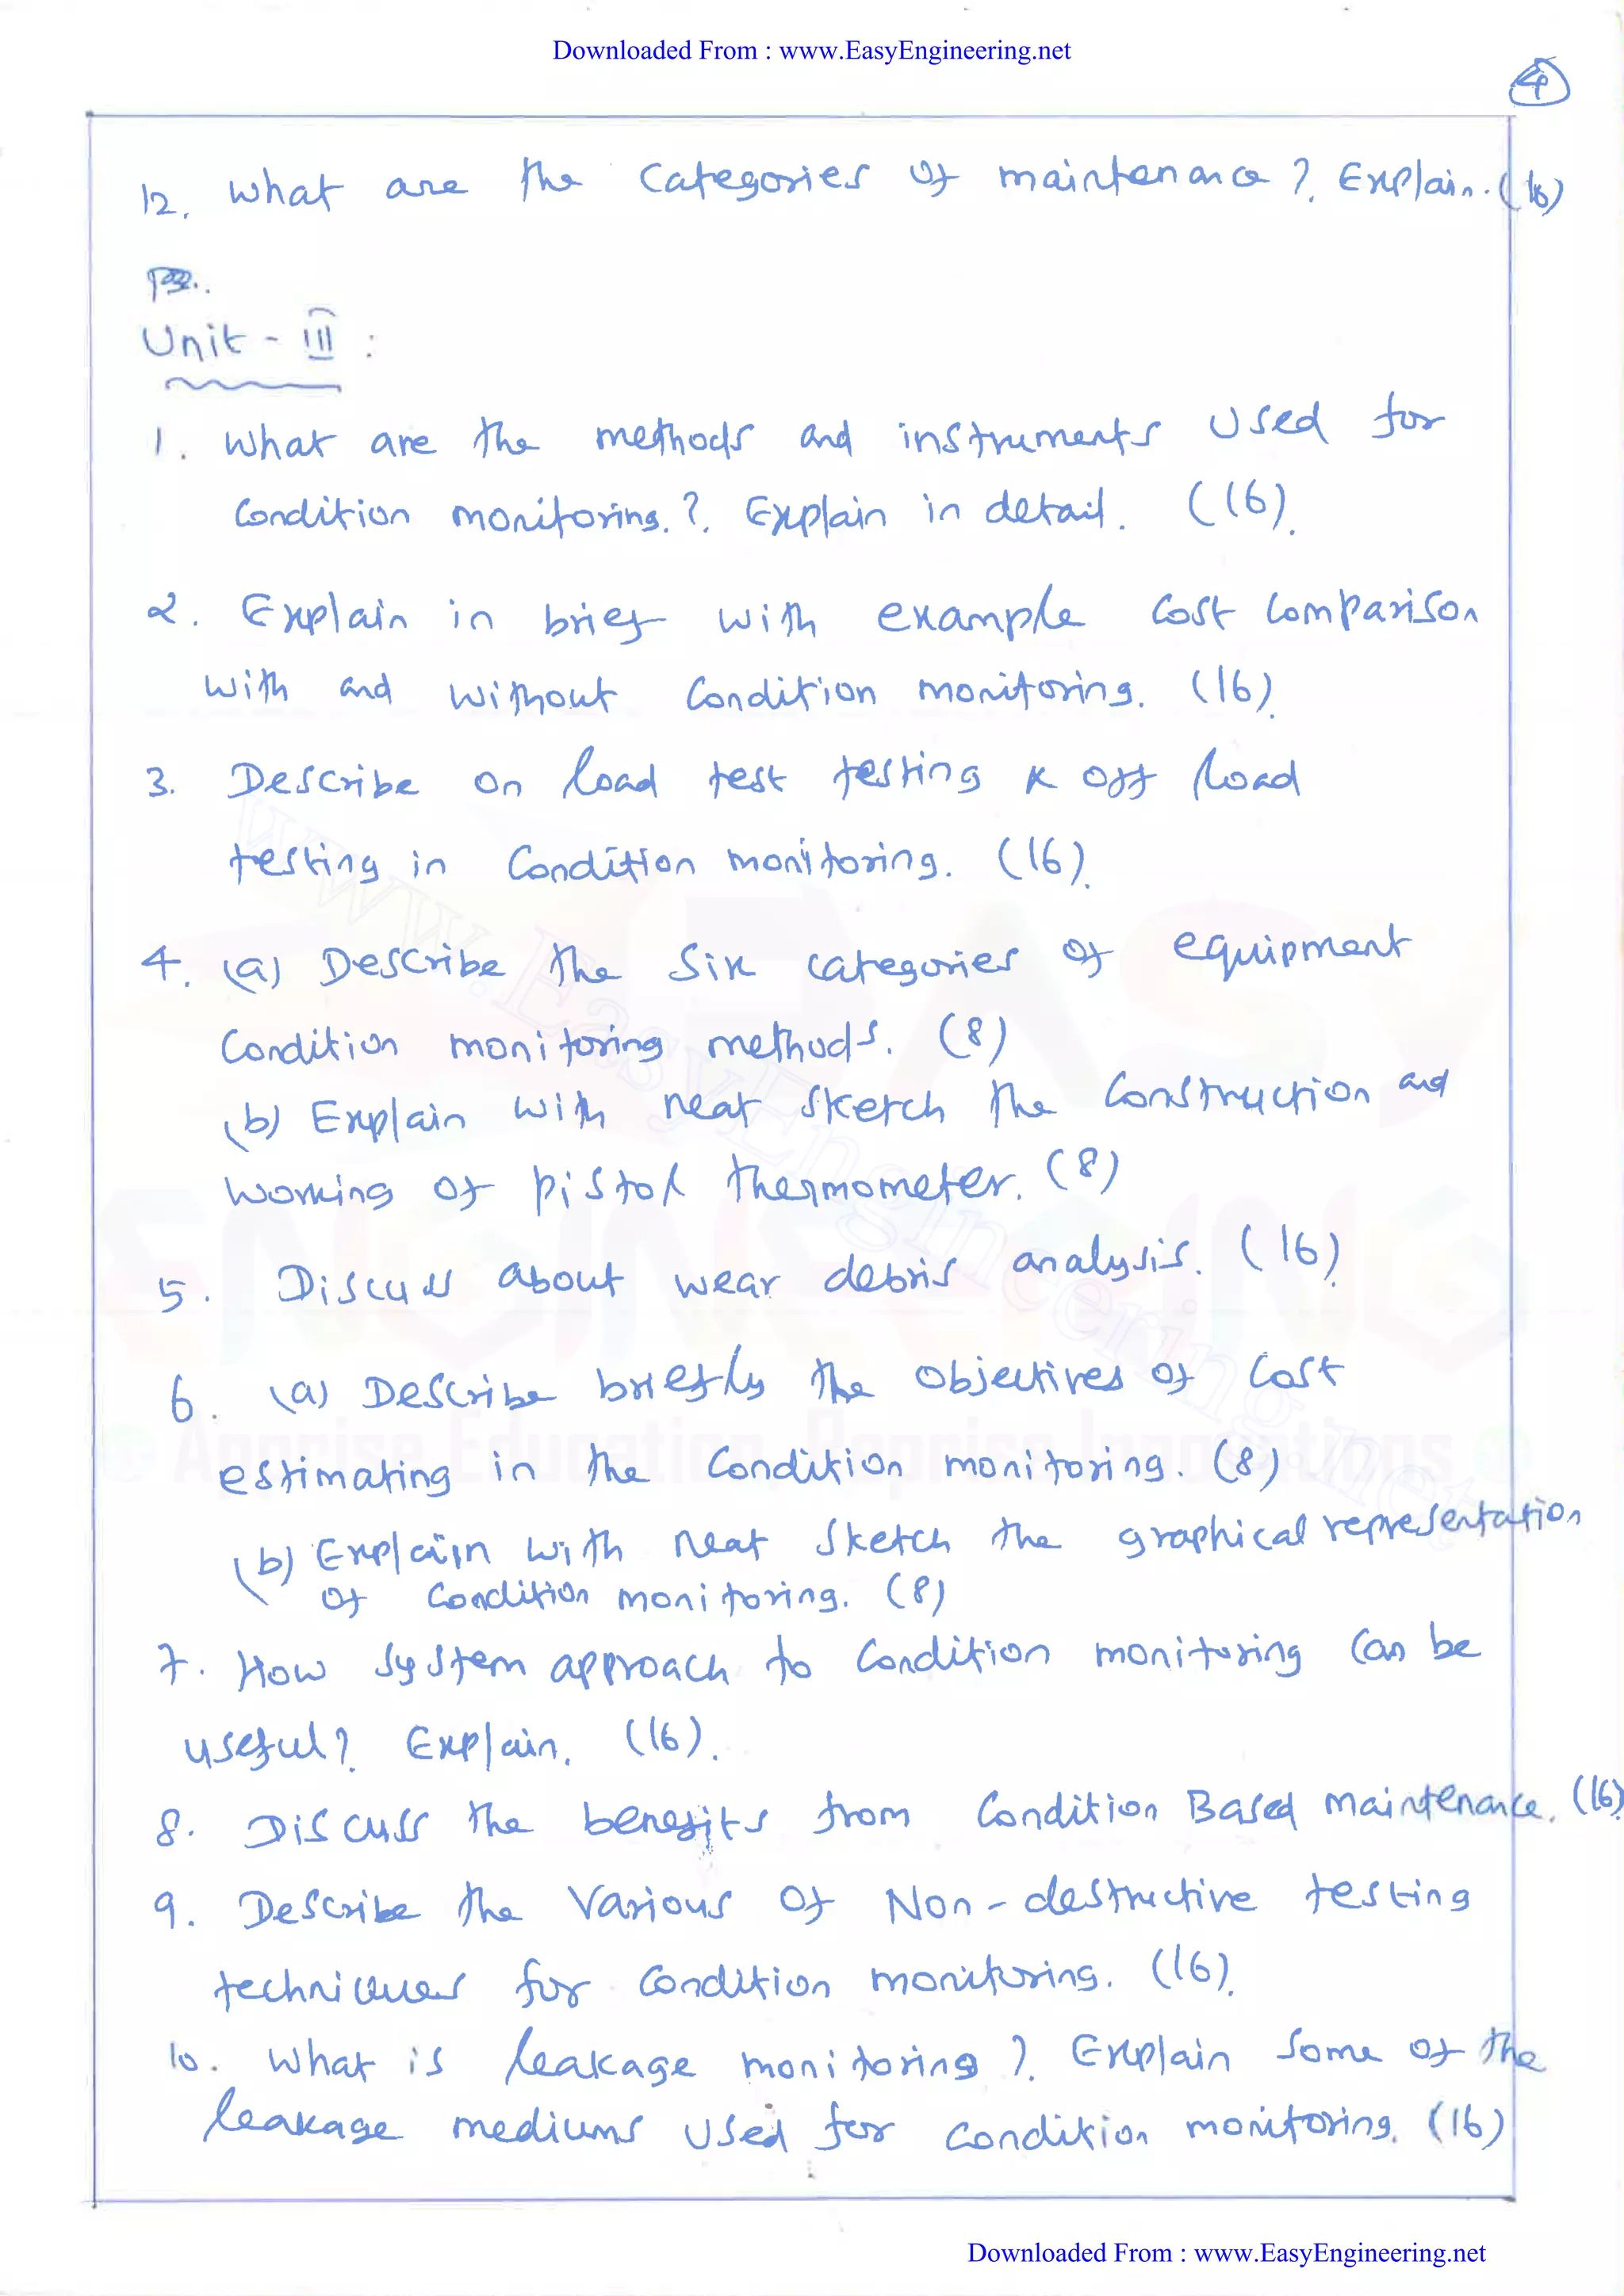 Downloaded From : www.EasyEngineering.net
4
12. What are the Categories of maintenance ?. Explain. (16)
Unit - III :
1. What are the methods and instruments Used for
Condition monitoring. ?. Explain in detail. (16).
2. Explain in brief with example Cost Comparison
with and without Condition monitoring. (16).
3. Describe on load test testing & off load
testing in Condition monitoring. (16).
4. (a) Describe the Six categories of equipment
Condition monitoring methods. (8)
(b) Explain with neat sketch the Construction and
working of pistol thermometer. (8)
5. Discuss about wear debris analysis. (16).
6. (a) Describe briefly the objectives of Cost
estimating in the Condition monitoring. (8)
(b) Explain with neat sketch the graphical representation
of Condition monitoring. (8)
7. How system approach to Condition monitoring Can be
useful ?. Explain. (16).
8. Discuss the benefits from Condition Based maintenance. (16).
9. Describe the Various of Non-destructive testing
techniques for Condition monitoring. (16).
10. What is leakage monitoring ?. Explain Some of the
leakage mediums Used for Condition monitoring. (16)
www.EasyEngineering.net
EASY
ENGINEERING
Downloaded From : www.EasyEngineering.net